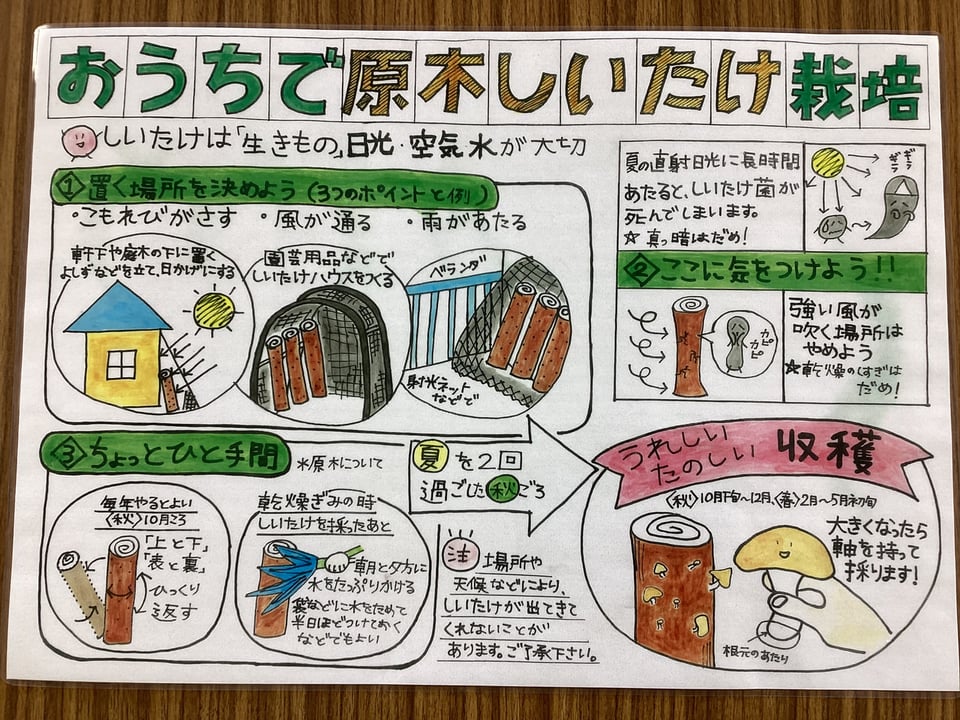 おうちで原木しいたけ栽培
しいたけは「生きもの」日光・空気水が大切
①置く場所を決めよう(3つのポイントと例)
・こもれびがさす ・風が通る ・雨があたる
軒下や庭木の下に置く
よしずなどを立て、日かげにする
園芸用品などで
しいたけハウスをつくる
ベランダ
射光ネット
などで
夏の直射日光に長時間
あたると、しいたけ菌が
死んでしまいます。
☆真っ暗はだめ!
ギラ
ギラ
②ここに気をつけよう!!
カピ
カピ
強い風が
吹く場所は
やめよう
☆乾燥のしすぎは
だめ!
③ちょっとひと手間
※原木について
毎年やるとよい
〈秋〉10月ごろ
「上と下」
「表と裏」
ひっくり
返す
乾燥ぎみの時
しいたけを採ったあと
朝と夕方に
水をたっぷりかける
袋などに水をためて
半日ほどつけておく
などでもよい
夏を2回
過ごした秋ごろ
注 場所や
天候などにより、
しいたけが出てきて
くれないことが
あります。ご了承下さい。
うれしい
たのしい 収穫
〈秋〉10月下旬〜12月、〈春〉2月〜5月初旬
大きくなったら
軸を持って
採ります!
根元のあたり